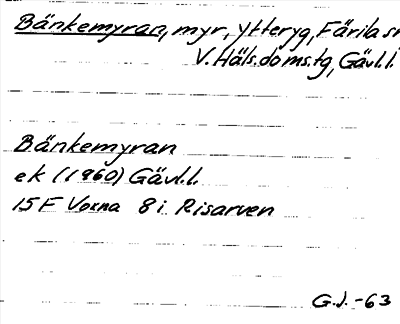 Bänkemyran, myr, Ytteryg, Färila sn
V. Häls. doms.tg, Gävl.l.
Bänkemyran
ek (1960) Gävl.l.
15F Voxna 8i Risarven
G.J. -63